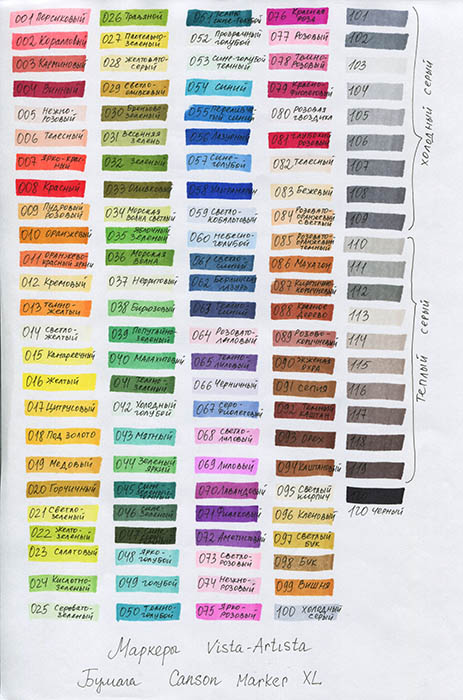 001 Персиковый
002 Коралловый
003 Карминовый
004 Винный
005 Нежно-
розовый
006 Телесный
007 Ярко-крас
ный
008 Красный
009 Пудрово
розовый
010 Оранжевый
011 Оранжево-
красный яркий
012 Кремовый
013 Темно-
желтый
014 Светло-
желтый
015 Канареечный
016 Желтый
017 Цитрусовый
018 Под золото
019 Медовый
020 Горчичный
021 Светло-
зеленый
022 Желто-
зеленый
023 Салатовый
024 Кислотно-
зеленый
025 Серовато-
зеленый
026 Травяной
027 Пастельно-
зеленый
028 Желтовато-
серый
029 Светло-
оливковый
030
зеленый
031 Весенняя
зелень
032 Зеленый
033 Оливковый
034 Морская
волна светлый
035 Яблочный
зеленый
036 Морская
волна
037 Нефритовый
038 Бирюзовый
039 Попугайно-
зеленый
040 Малахитовый
041 Темно-
зеленый
042 Холодный
голубой
043 Мятный
044 Зеленый
яркий
045 Сине-
зеленый
046 Сине-
зеленый
048 Ярко-
голубой
049 Голубой
050 Темно-
голубой
051
сине-голубой
052 Прозрачный
голубой
053 Сине-голубой
темный
054 Синий
055
синий
056 Лазурный
057 Сине-
голубой
058 Ультрамарин
059 Светло-
кобальтовый
060 Небесно-
голубой
061
синий
062 Берлинская
лазурь
063 Темно-синий
064 Розовато-
лиловый
065 Темно-
лиловый
066 Черничный
067 Серо-
фиолетовый
068 Светло-
лиловый
069 Лиловый
070 Лавандовый
071 Фиалковый
072 Аметистовый
073 Светло-
розовый
074 Нежно-
розовый
075 Ярко-
розовый
076 Красная
роза
077 Розовый
078 Темно-
розовый
079 Красно-
фиолетовый
080 Розовая
гвоздика
081 Глубокий
розовый
082 Телесный
083 Бежевый
084 Розовато-
оранжевый
светлый
085 Розовато-
оранжевый
темный
086 Махагон
087 Кирпично-
коричневый
088 Красное
дерево
089 Розово-
коричневый
090 Жженая
охра
091 Сепия
092 Темный
каштан
093 Орех
094 Каштановый
095 Светлый
кирпич
096 Кленовый
097 Светлый
бук
098 Бук
099 Вишня
100 Холодный
серый
101
102
103
104
105
106
107
108
109
110
111
112
113
114
115
116
117
118
119
120 Черный
холодный серый
теплый серый
Маркеры Vista-Artista
Бумага Canson Marker XL